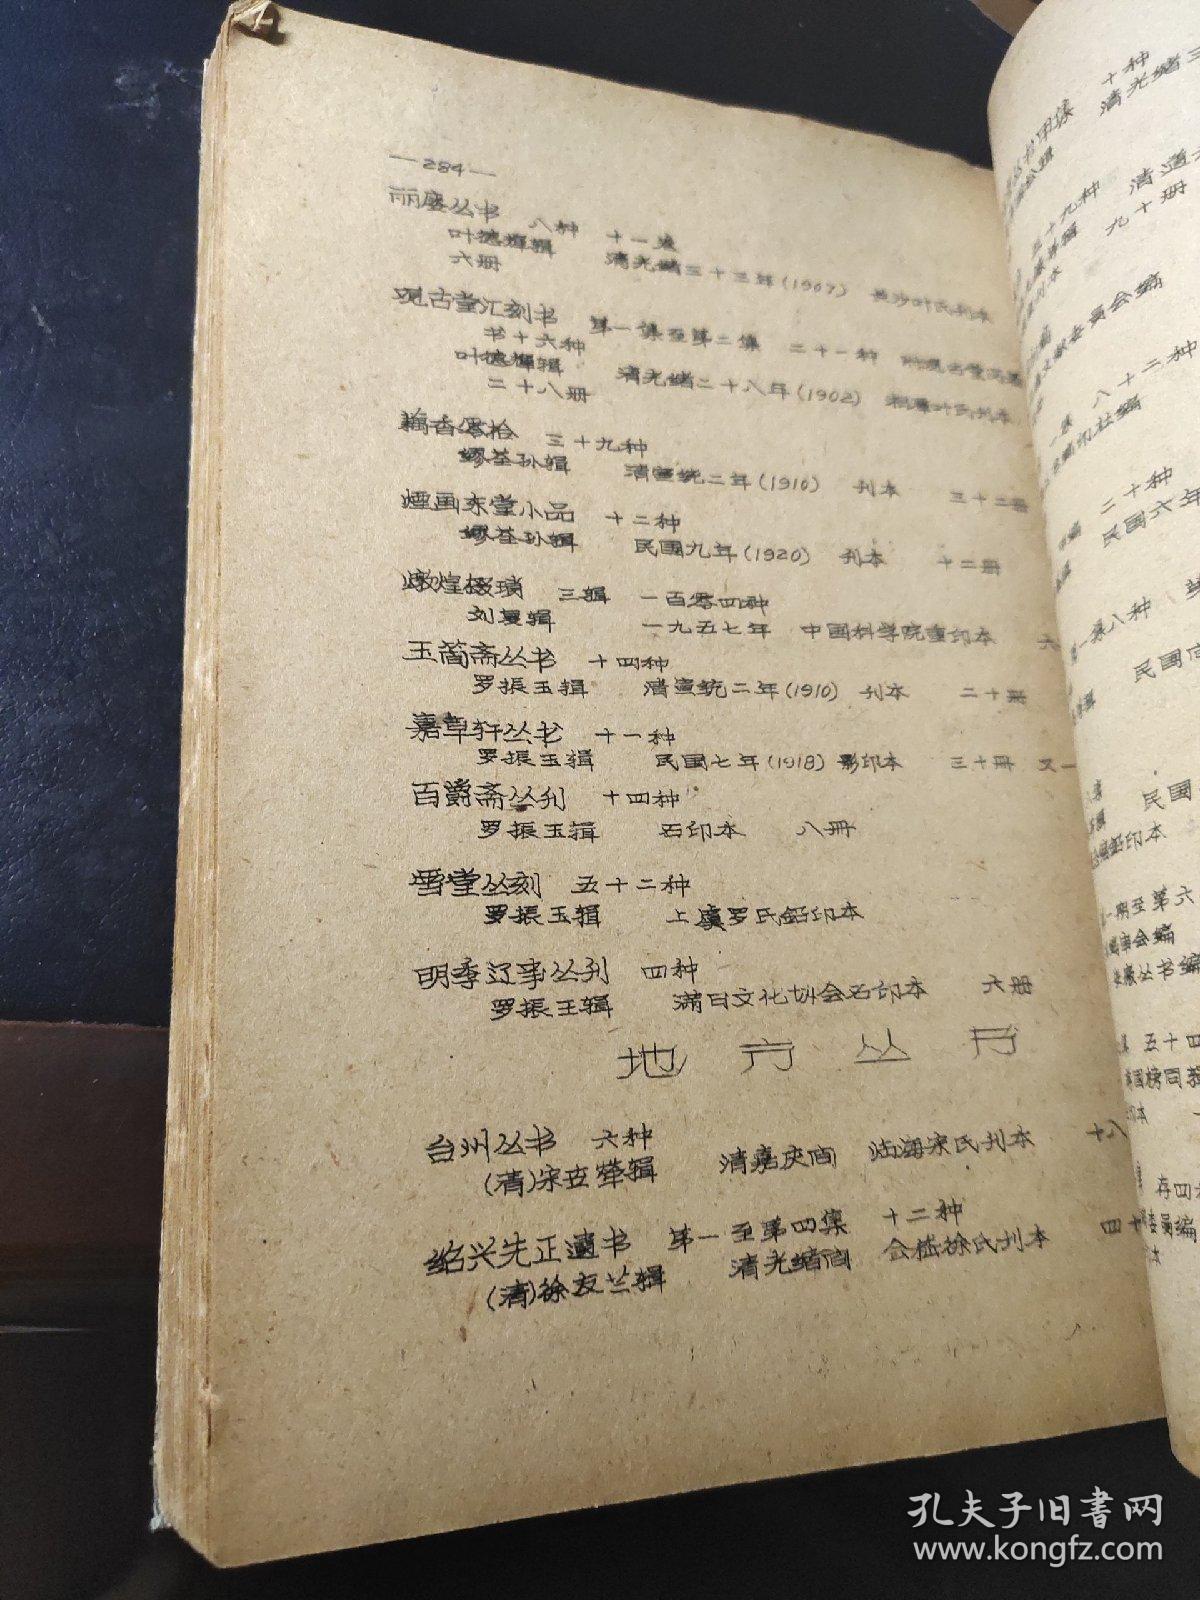 —284—
丽廔丛书 八种 十一卷
叶德辉辑 清光绪三十三年(1907) 长沙叶氏刊本
六册
观古堂汇刻书 第一集至第二集 二十一种 附观古堂
书十六种
叶德辉辑 清光绪二十八年(1902) 湘潭叶氏刊本
二十八册
藕香零拾 三十九种
缪荃孙辑 清宣统二年(1910) 刊本 三十二册
烟画东堂小品 十二种
缪荃孙辑 民国九年(1920) 刊本 十二册
燉煌掇琐 三辑 一百零四种
刘复辑 一九五七年 中国科学院重印本 六
玉简斋丛书 十四种
罗振玉辑 清宣统二年(1910) 刊本 二十册
嘉草轩丛书 十一种
罗振玉辑 民国七年(1918) 影印本 三十册 又一
百爵斋丛刊 十四种
罗振玉辑 石印本 八册
雪堂丛刻 五十二种
罗振玉辑 上虞罗氏铅印本
明季辽事丛刊 四种
罗振玉辑 满日文化协会石印本 六册
地方丛书
台州丛书 六种
(清)宋世荦辑 清嘉庆间 临海宋氏刊本 十八
绍兴先正遗书 第一至第四集 十二种
(清)徐友兰辑 清光绪间 会稽徐氏刊本 四十
十种
清光绪三
五十九种 清道光
九十册
刊本
文献委员会编
一集 八十二种
影印社编
二十种
民国六年
第一集八种
民国
民国
铅印本
一期至第六
编审会编
丛书编
五十四
国榜同辑
印本
存四
委员编
本
孔夫子旧书网
www.kongfz.com